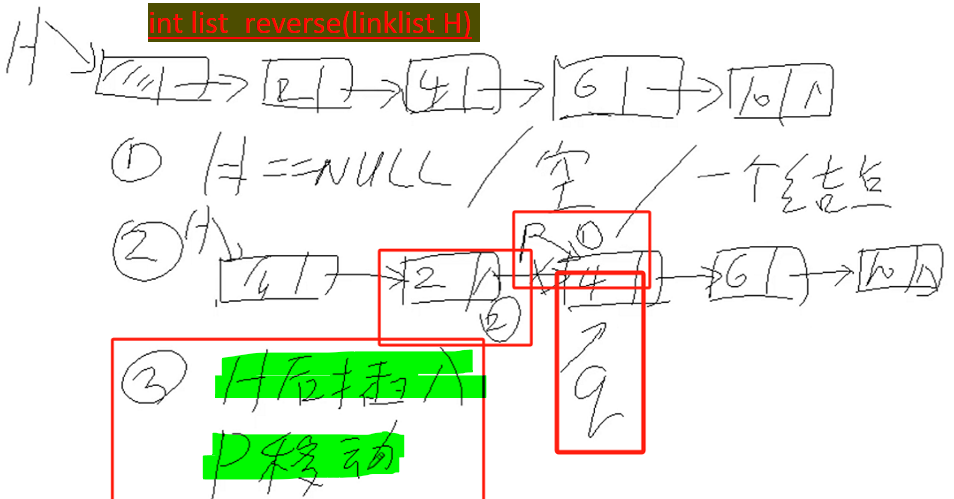 int list_reverse(linklist H)
H
2 4 6 10 ∧
① H==NULL / 空 / 一个结点
② H P ①
2 ∧ 4 6 10 ∧
②
③ H后插入 q
P移动